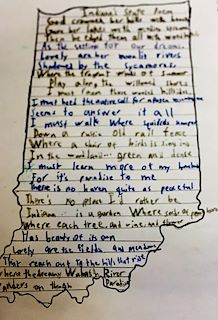 Indiana State Poem
God crowned her hills with beauty
Gave her lakes with
Then He edged them all
As the setting for our dreams.
Lovely are her moonlit rivers
Shadowed by the sycamores
Where the fragrant winds of summer
Play along the willowed shores
I must roam those wooded hillsides
I must heed the native call for a
Seems to answer it all
I must walk where squirrels scamper
Down a rustic old rail fence
Where a choir of birds is singing
In the woodland green and dense
I must learn more of my
for it's paradise to me
There is no haven quite as peaceful
There's no place I'd rather be
Indiana is a garden Where seeds of peace have
where each tree, and vine, and flower
Has beauty of its own
Lovely are the fields and meadows
That reach out to the hills that rise
where the dreamy Wabash River
Wanders on though Paradise